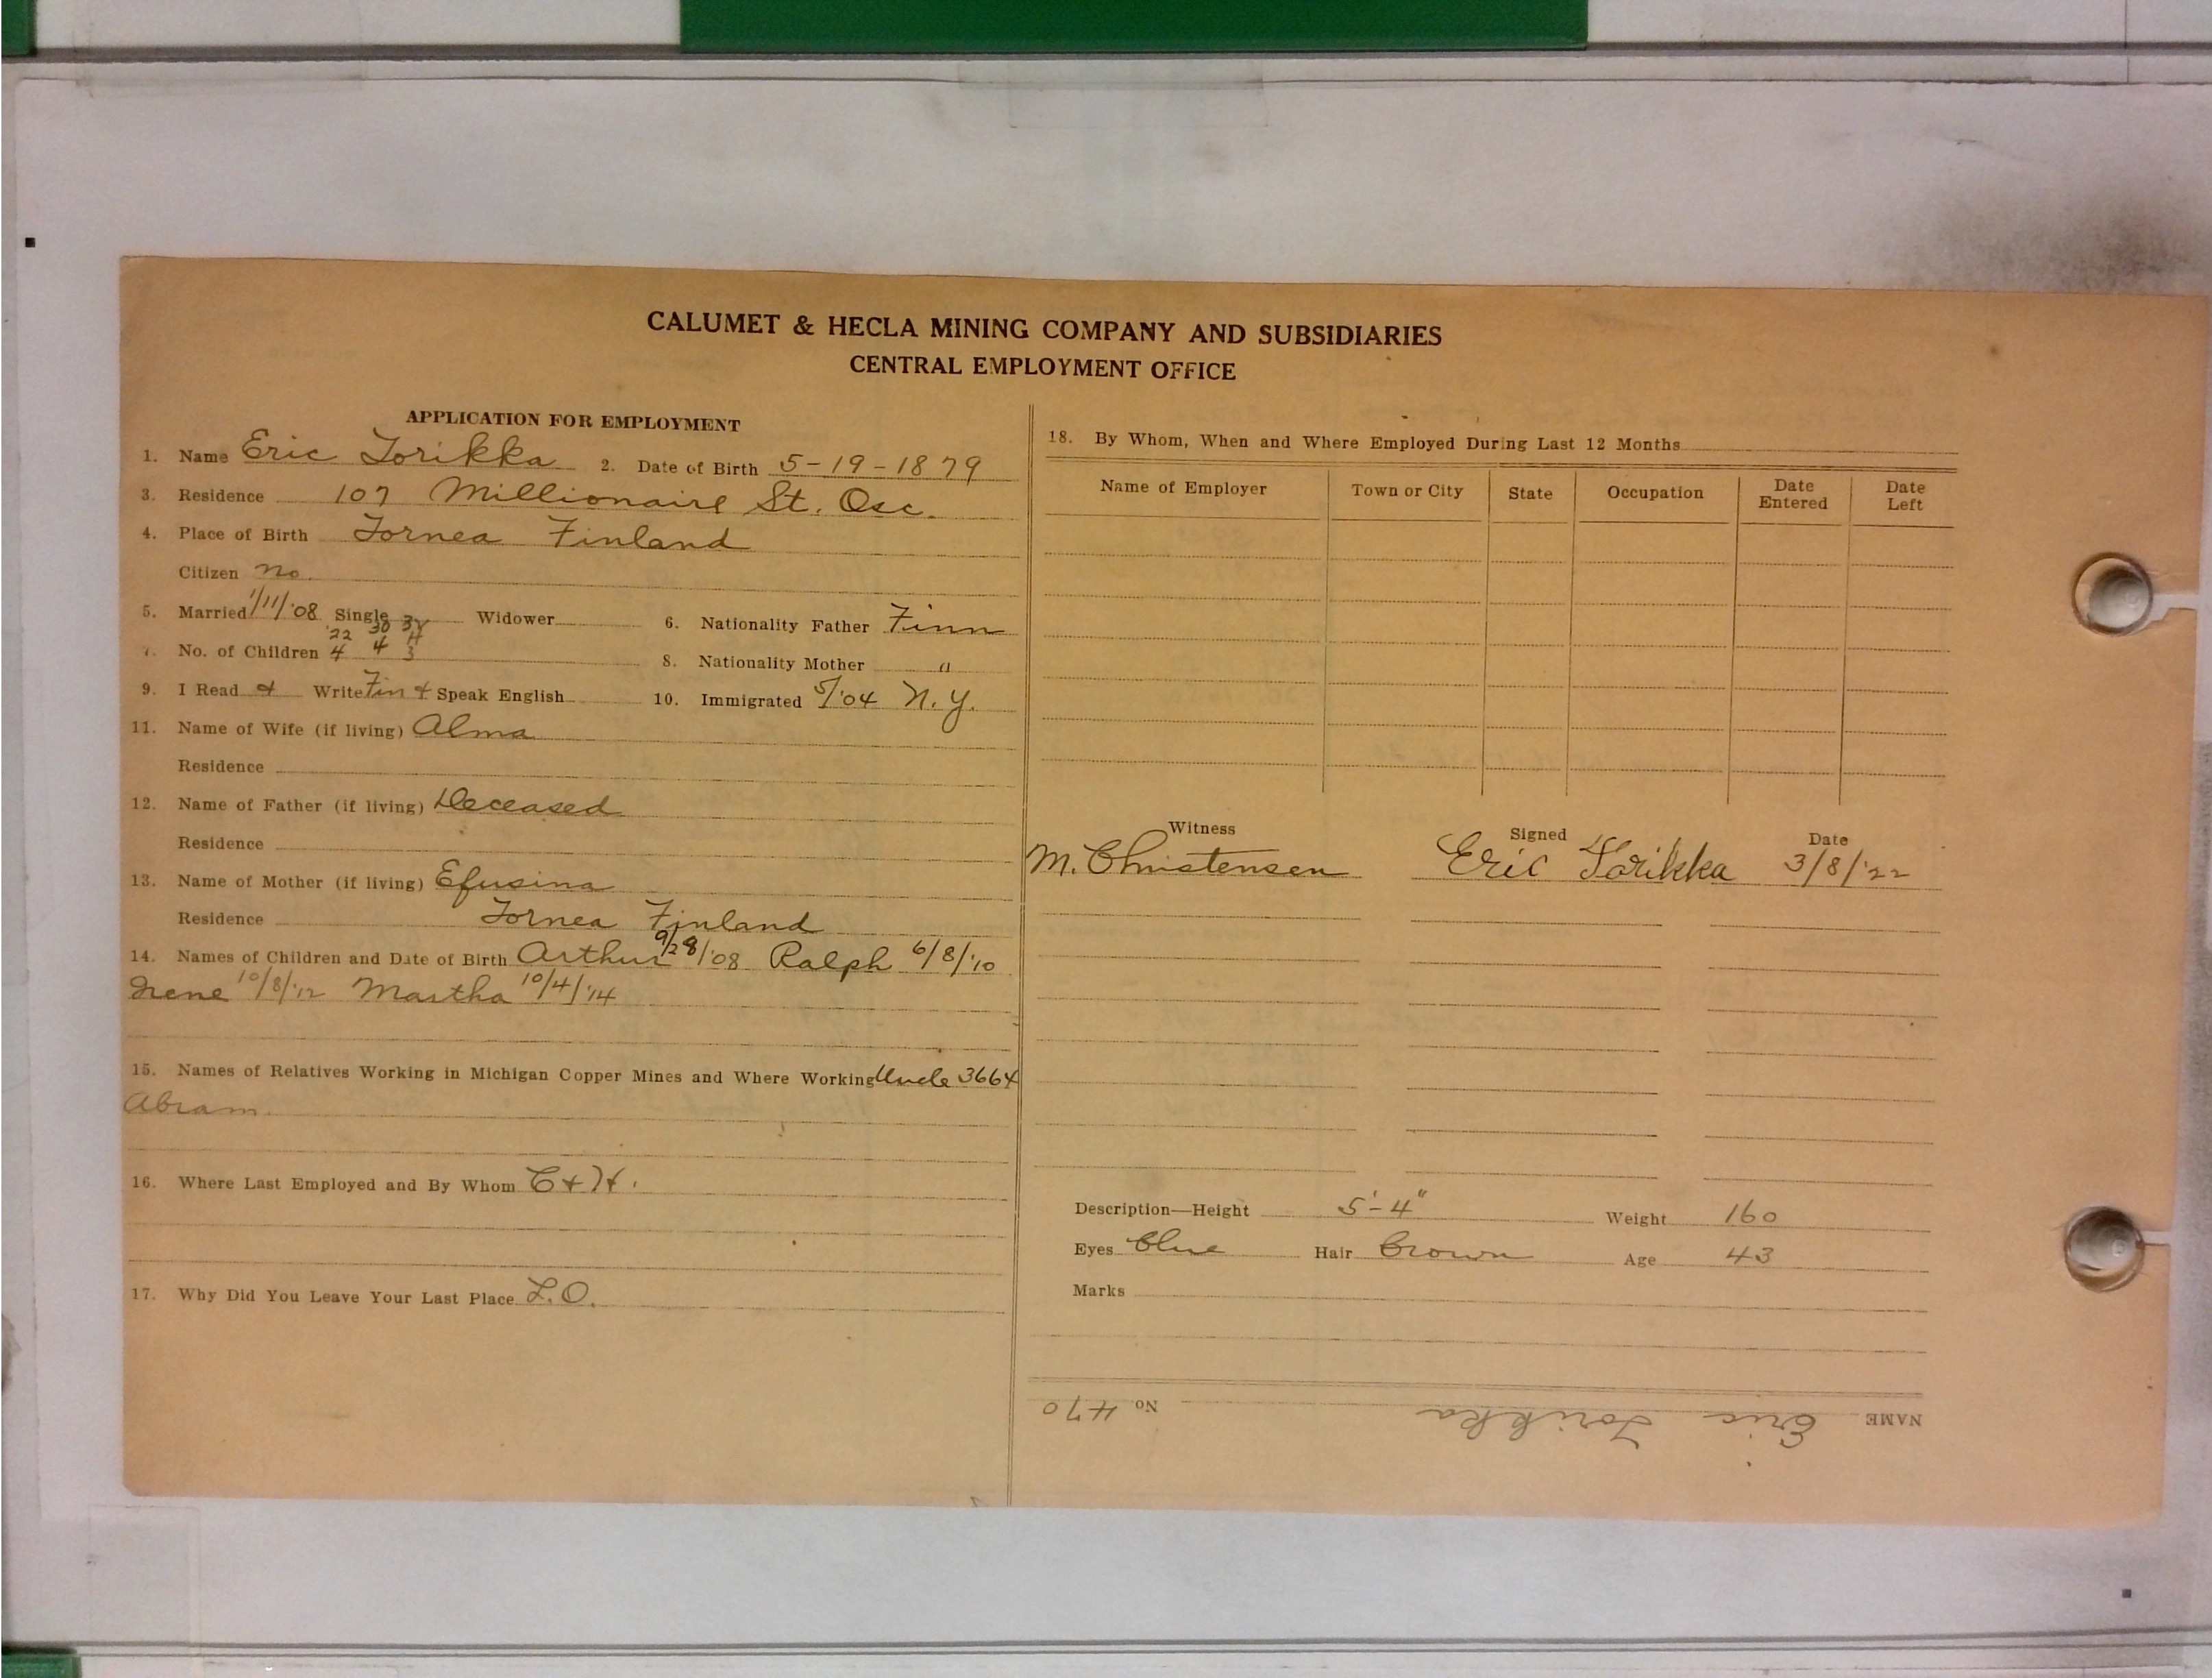 CALUMET & HECLA MINING COMPANY AND SUBSIDIARIES
CENTRAL EMPLOYMENT OFFICE
APPLICATION FOR EMPLOYMENT
1. Name Eric Torikka 2. Date of Birth 5-19-1879
3. Residence 107 Millionaire St. Osc.
4. Place of Birth Tornea Finland
Citizen no.
5. Married 1/11/'08 Single Widower 6. Nationality Father Finn
'22 30
7. No. of Children 4 4 3 8. Nationality Mother "
9. I Read & Write Fin & Speak English 10. Immigrated 5/'04 N.Y.
11. Name of Wife (if living) Alma
Residence
12. Name of Father (if living) Deceased
Residence
13. Name of Mother (if living) Efusina
Residence Tornea Finland
14. Names of Children and Date of Birth Arthur 9/28/'08 Ralph 6/8/'10
Irene 10/8/'12 Martha 10/4/'14
15. Names of Relatives Working in Michigan Copper Mines and Where Working Uncle 3664
Abram.
16. Where Last Employed and By Whom C & H.
17. Why Did You Leave Your Last Place L.O.
18. By Whom, When and Where Employed During Last 12 Months
Name of Employer Town or City State Occupation Date Entered Date Left
Witness Signed Date
M. Christensen Eric Torikka 3/8/'22
Description—Height 5'-4" Weight 160
Eyes Blue Hair Brown Age 43
Marks
NAME Eric Torikka No. 470